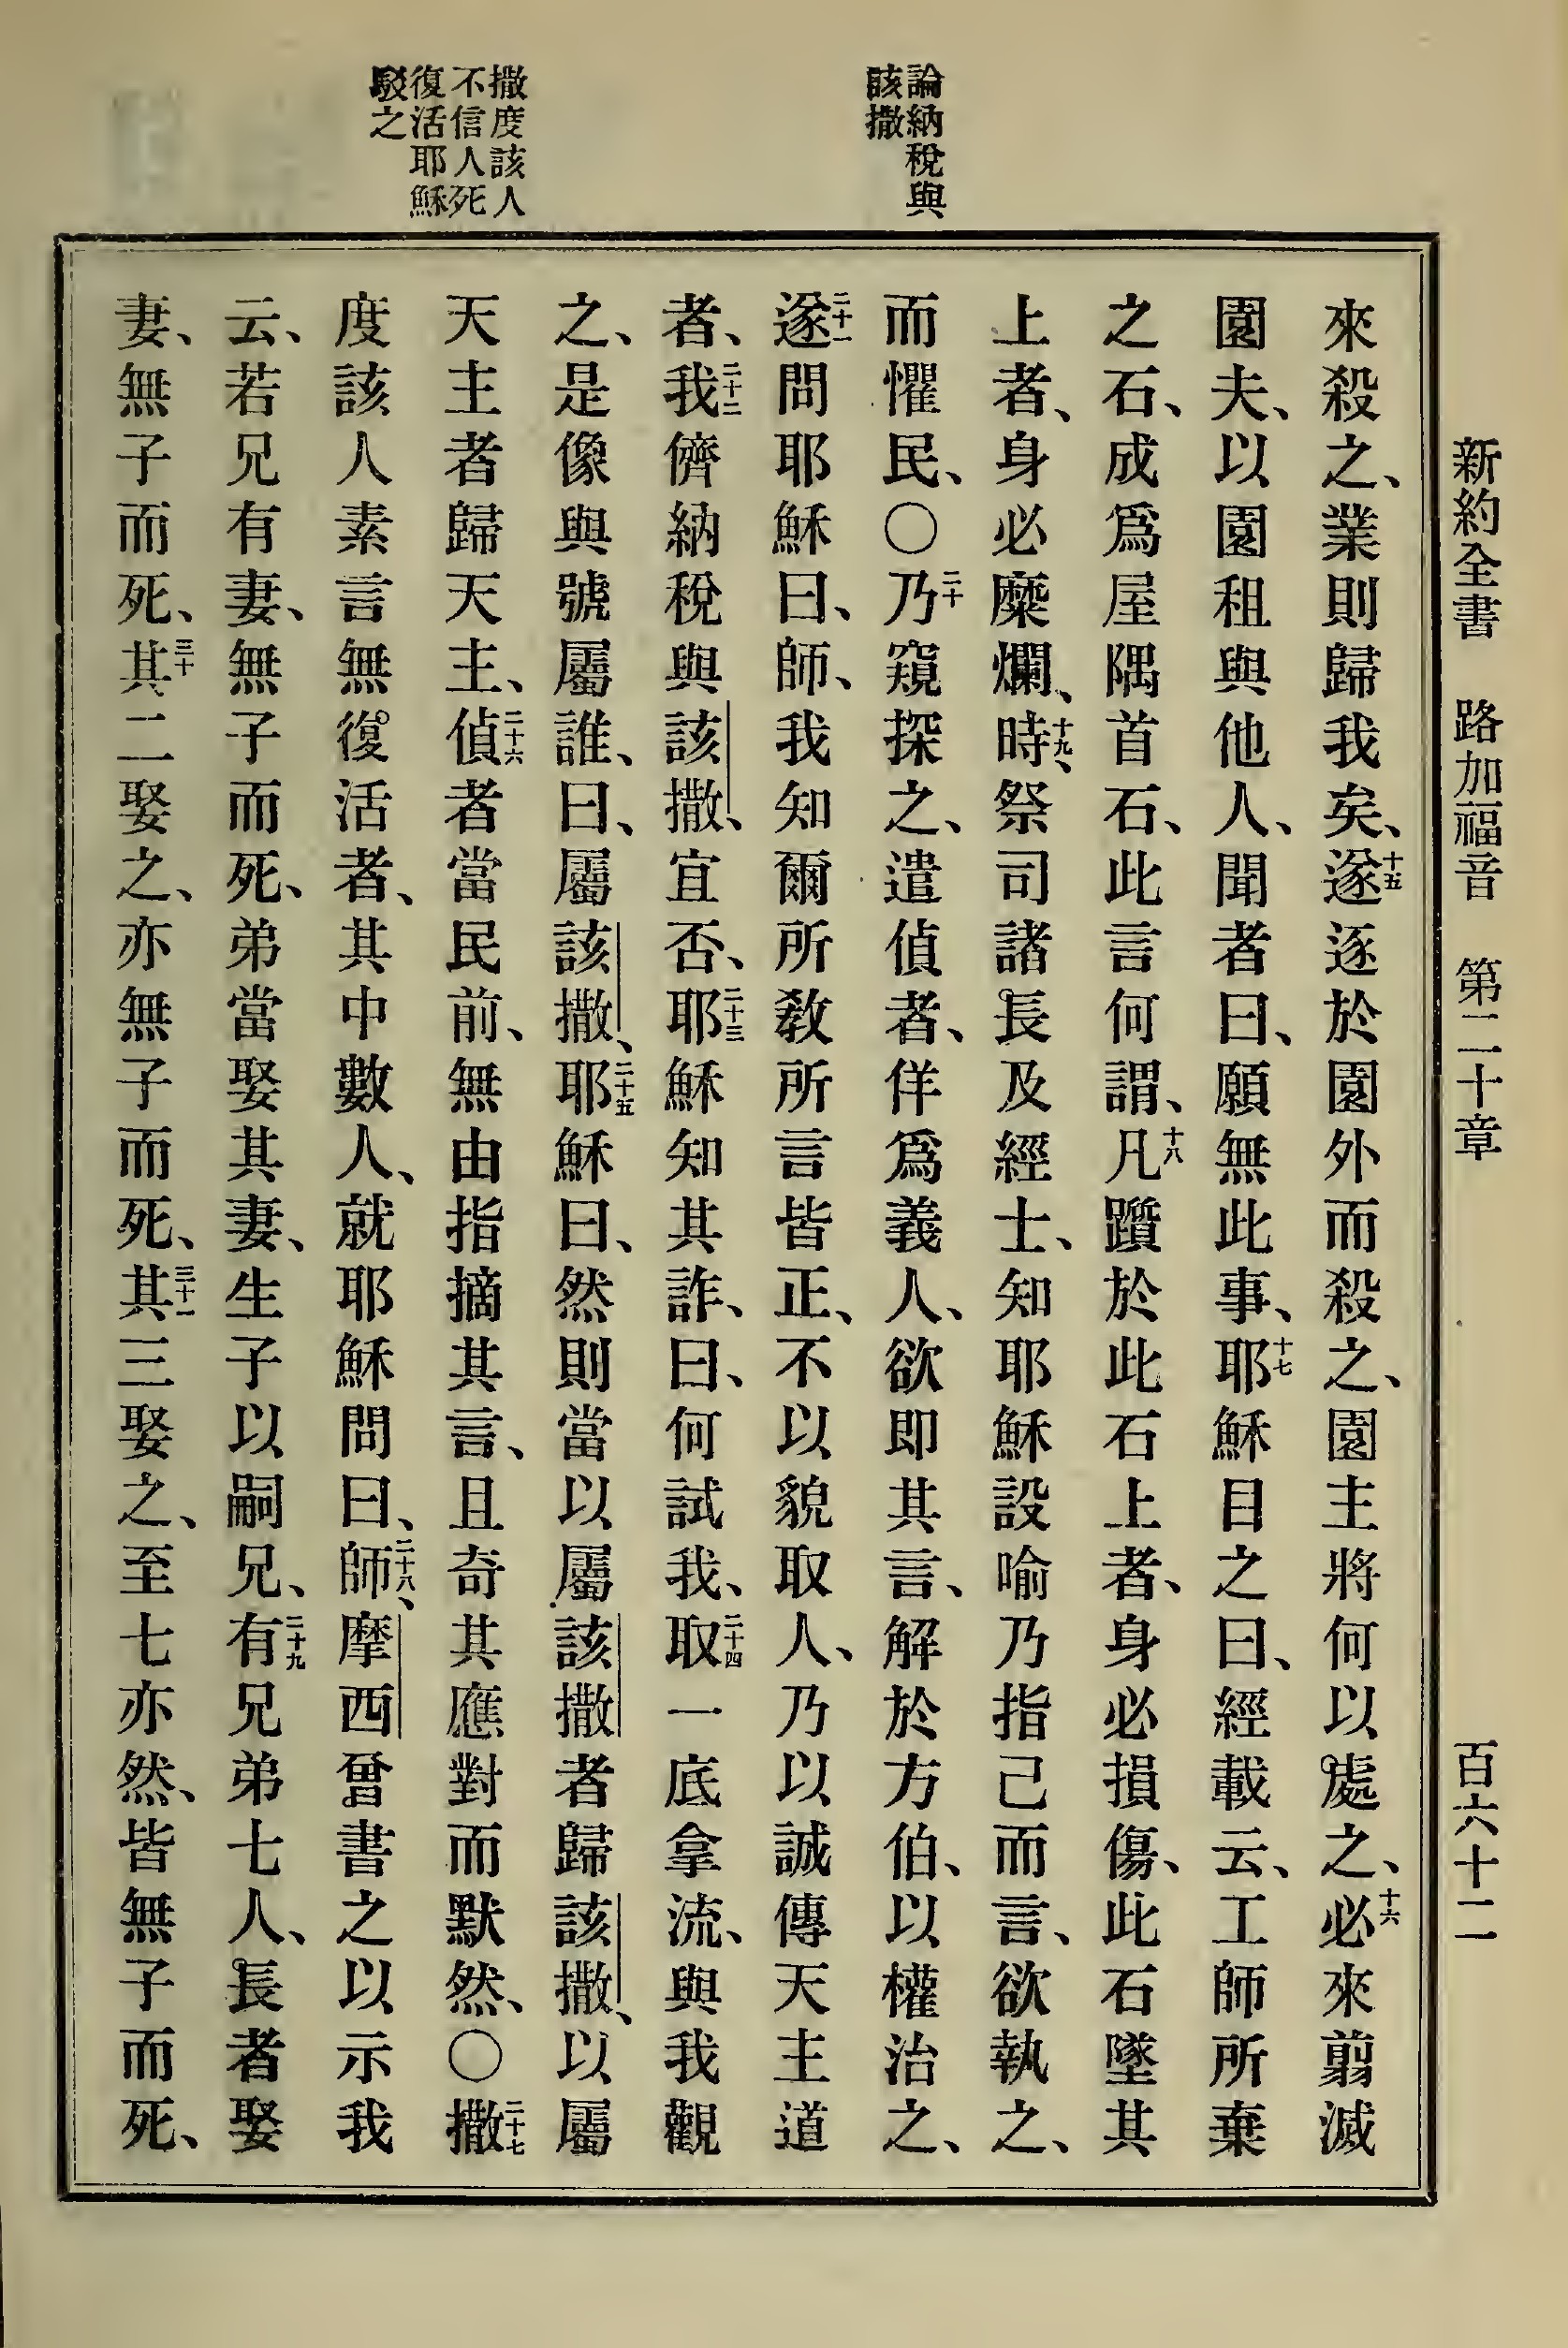 新約全書 路加福音 第二十章 百六十二
論納稅與
該撒
撒度該人
不信人死
復活耶穌
駁之
來殺之、業則歸我矣、十五遂逐於園外而殺之、園主將何以處之、十六必來翦滅
園夫、以園租與他人、聞者曰、願無此事、十七耶穌目之曰、經載云、工師所棄
之石、成爲屋隅首石、此言何謂、十八凡躓於此石上者、身必損傷、此石墜其
上者、身必糜爛、十九時、祭司諸長及經士、知耶穌設喻乃指己而言、欲執之、
而懼民、〇二十乃窺探之、遣偵者、佯爲義人、欲即其言、解於方伯、以權治之、
二十一遂問耶穌曰、師、我知爾所敎所言皆正、不以貌取人、乃以誠傳天主道
者、二十二我儕納稅與該撒、宜否、二十三耶穌知其詐、曰、何試我、二十四取一底拿流、與我觀
之、是像與號屬誰、曰、屬該撒、二十五耶穌曰、然則當以屬該撒者歸該撒、以屬
天主者歸天主、二十六偵者當民前、無由指摘其言、且奇其應對而默然、〇二十七撒
度該人素言無復活者、其中數人、就耶穌問曰、二十八師、摩西曾書之以示我
云、若兄有妻、無子而死、弟當娶其妻、生子以嗣兄、二十九有兄弟七人、長者娶
妻、無子而死、三十其二娶之、亦無子而死、三十一其三娶之、至七亦然、皆無子而死、